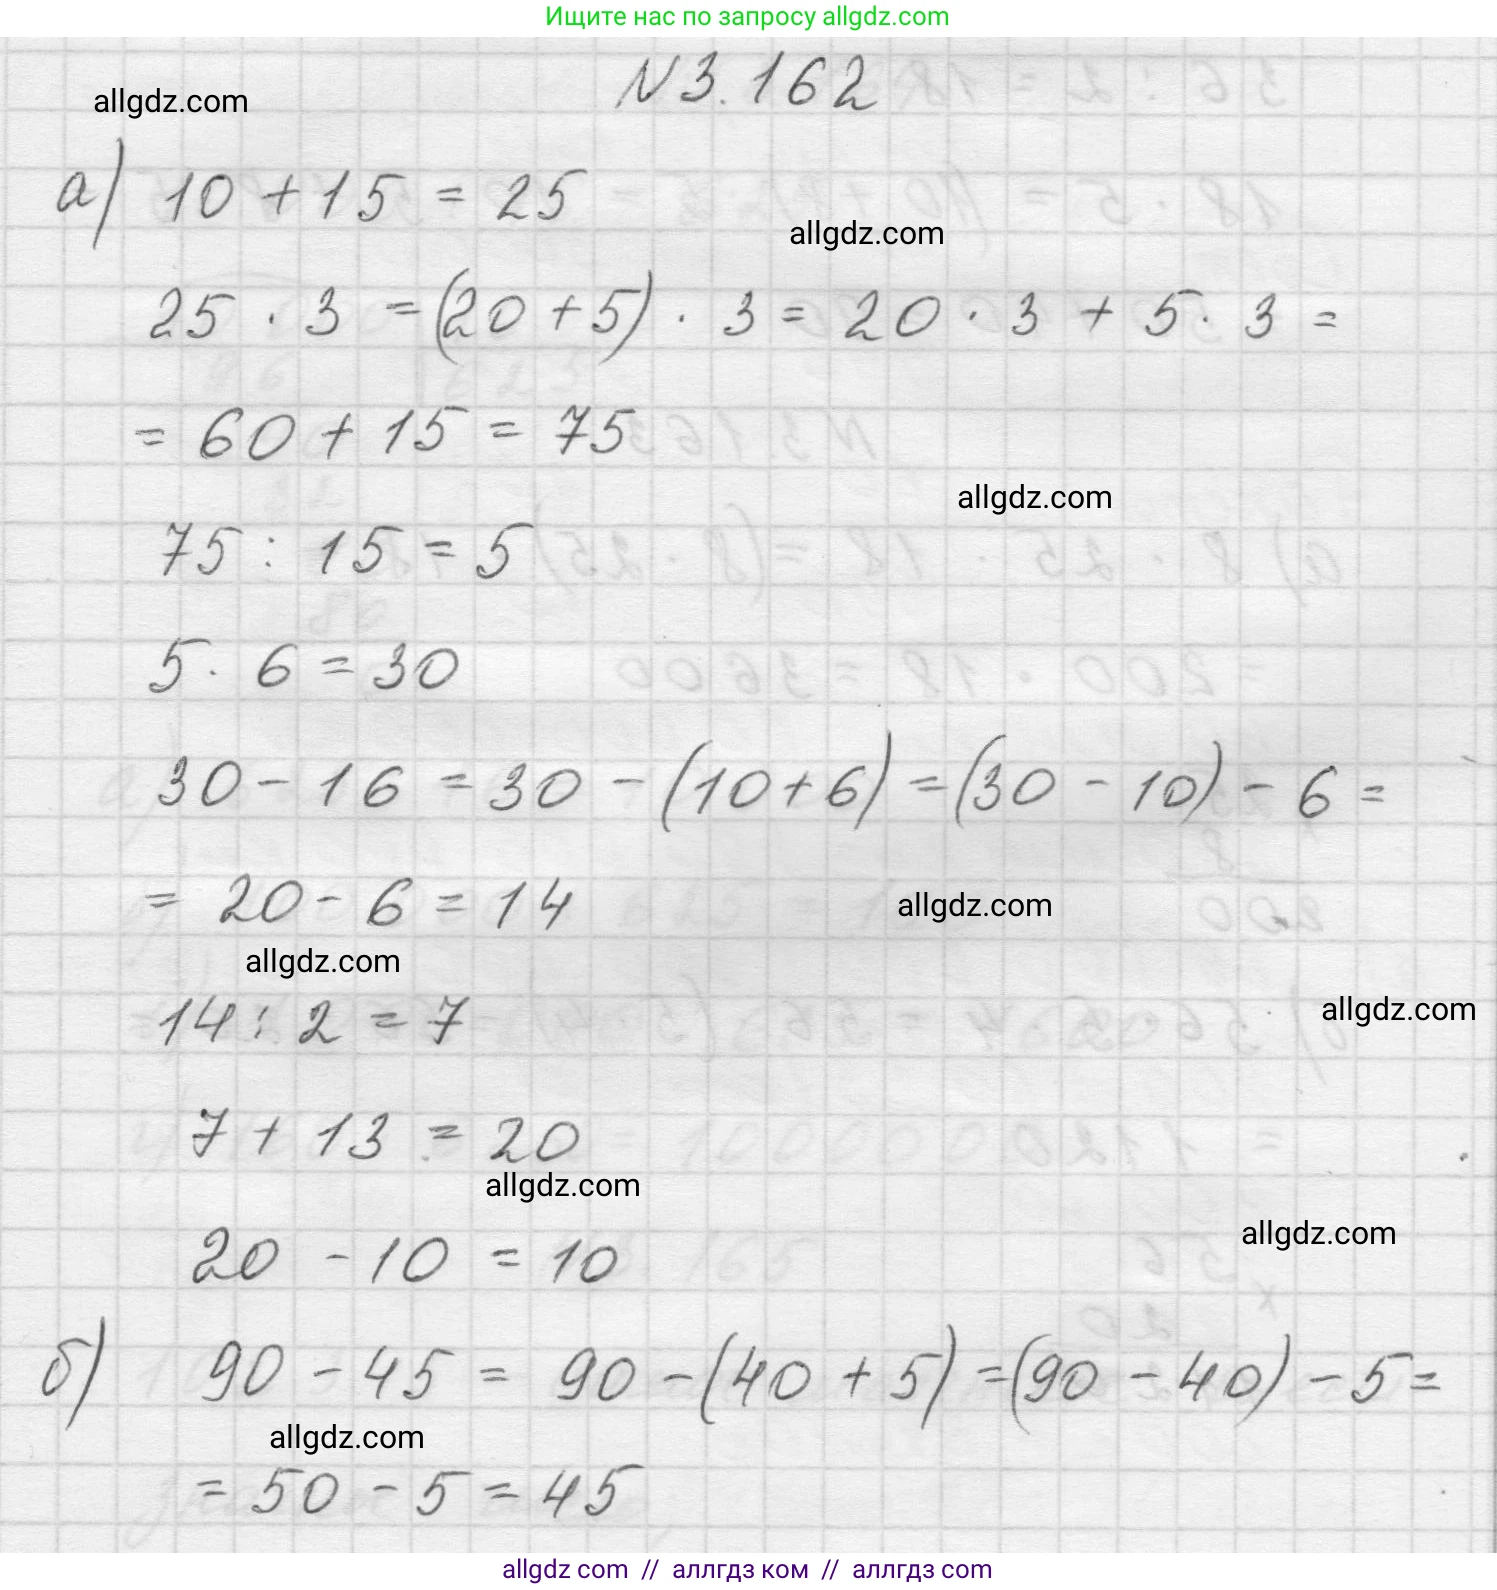 Ищите нас по запросу allgdz.com
N 3.162
allgdz.com
а) 10 + 15 = 25
allgdz.com
25 · 3 = (20 + 5) · 3 = 20 · 3 + 5 · 3 =
= 60 + 15 = 75
allgdz.com
75 : 15 = 5
5 · 6 = 30
30 - 16 = 30 - (10 + 6) = (30 - 10) - 6 =
= 20 - 6 = 14
allgdz.com
allgdz.com
14 : 2 = 7
allgdz.com
7 + 13 = 20
allgdz.com
allgdz.com
20 - 10 = 10
б) 90 - 45 = 90 - (40 + 5) = (90 - 40) - 5 =
allgdz.com
= 50 - 5 = 45
allgdz.com // аллгдз ком // аллгдз com